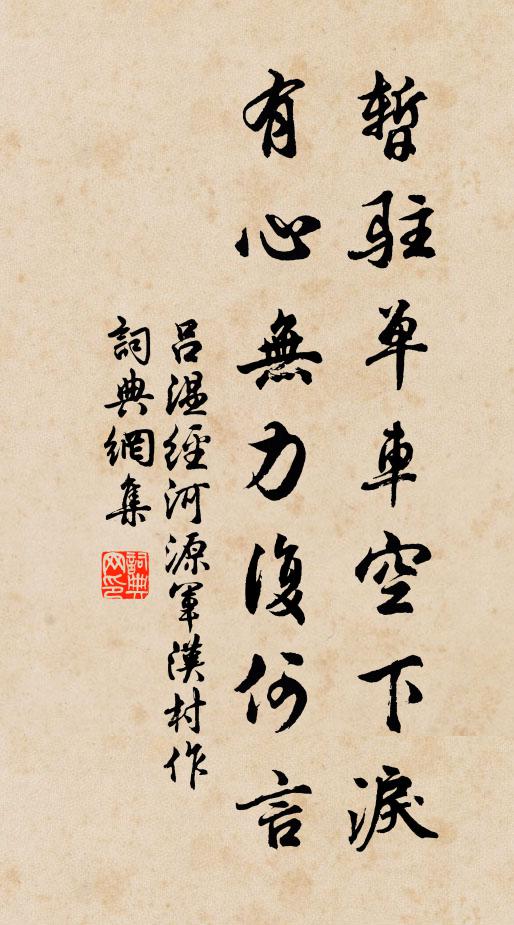 暫駐單車空下淚
有心無力復何言
呂溫經河源軍漢村作
詞典網集
詞典網印